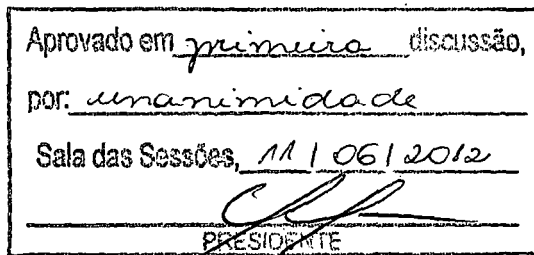 Aprovado em primeira discussão,
por: unanimidade
Sala das Sessões, 11 / 06 / 2012
PRESIDENTE